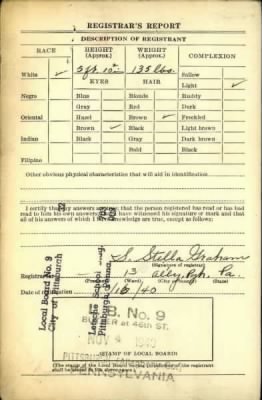 REGISTRAR'S REPORT
DESCRIPTION OF REGISTRANT
RACE HEIGHT (Approx.) WEIGHT (Approx.) COMPLEXION
White ✓ 5 ft. 10 in 135 lbs. Sallow
EYES HAIR Light ✓
Negro Blue Blonde Ruddy
Gray Red Dark
Oriental Hazel Brown ✓ Freckled
Brown ✓ Black Light brown
Indian Black Gray Dark brown
Bald Black
Filipino
Other obvious physical characteristics that will aid in identification
I certify that my answers are true; that the person registered has read or has had
read to him his own answers; that I have witnessed his signature or mark and that
all of his answers of which I have knowledge are true, except as follows:
S. Stella Graham
(Signature of registrar)
Registrar for 13 Pgh. Pa.
(Ward) (City or county) (State)
Date of registration 16/40
Local Board No. 9
City of Pittsburgh
Pittsburgh, Penna.
L. B. No. 9
BUTLER at 46th ST.
NOV 4 1940
PITTSBURGH
PENNSYLVANIA
(STAMP OF LOCAL BOARD)
(The stamp of the Local Board having jurisdiction of the registrant
shall be placed in the above space.)